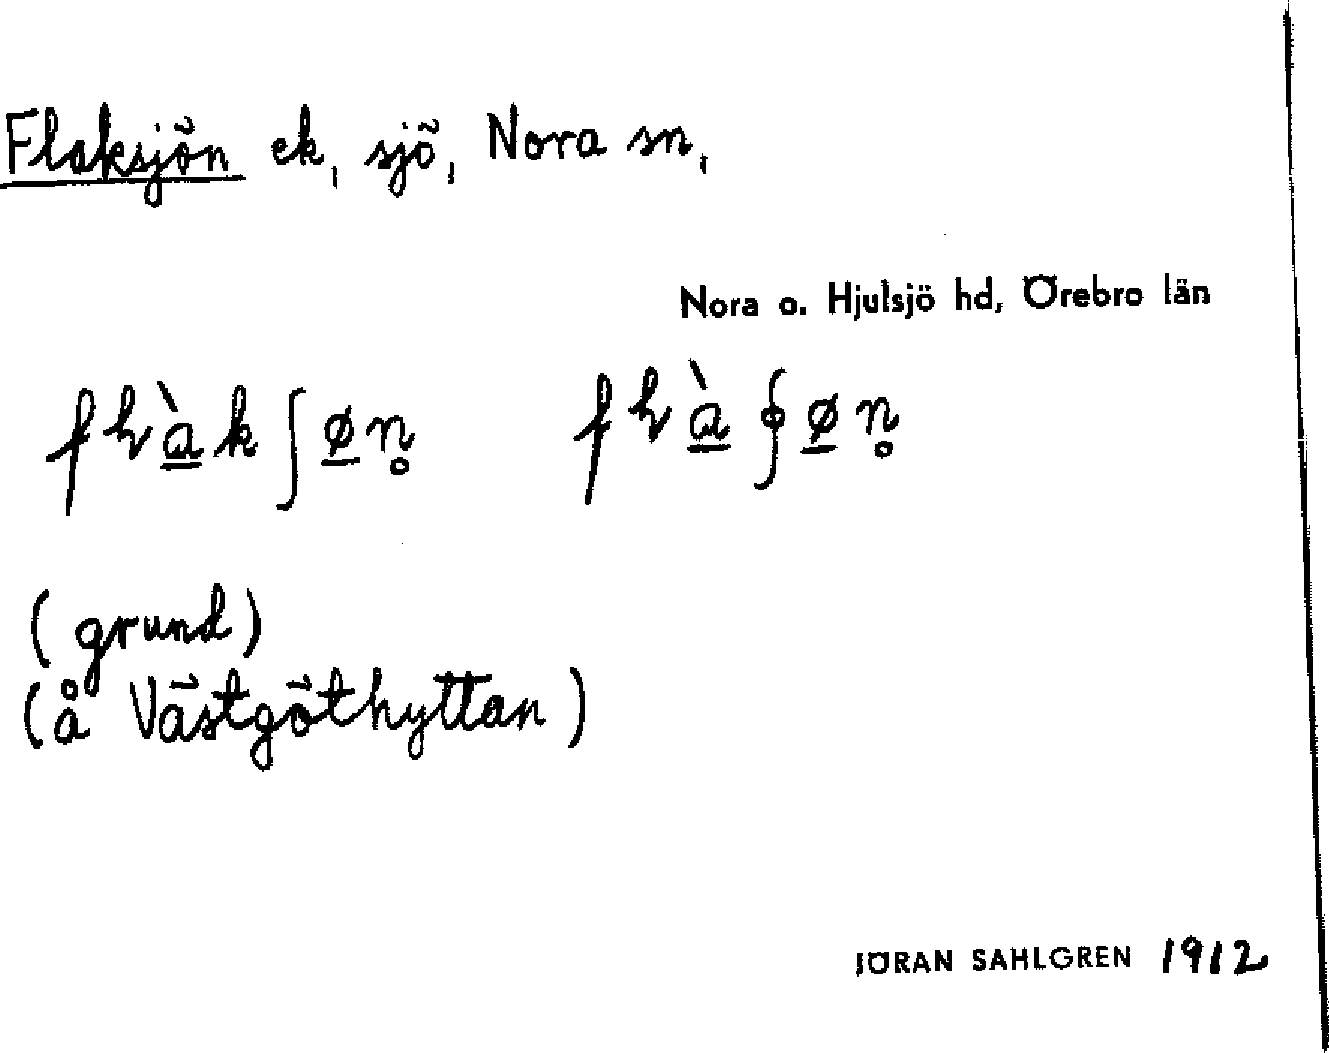 Flaksjön ek, sjö, Nora sn,
Nora o. Hjulsjö hd, Örebro län
(grund)
(å Västgöthyttan)
JÖRAN SAHLGREN 1912